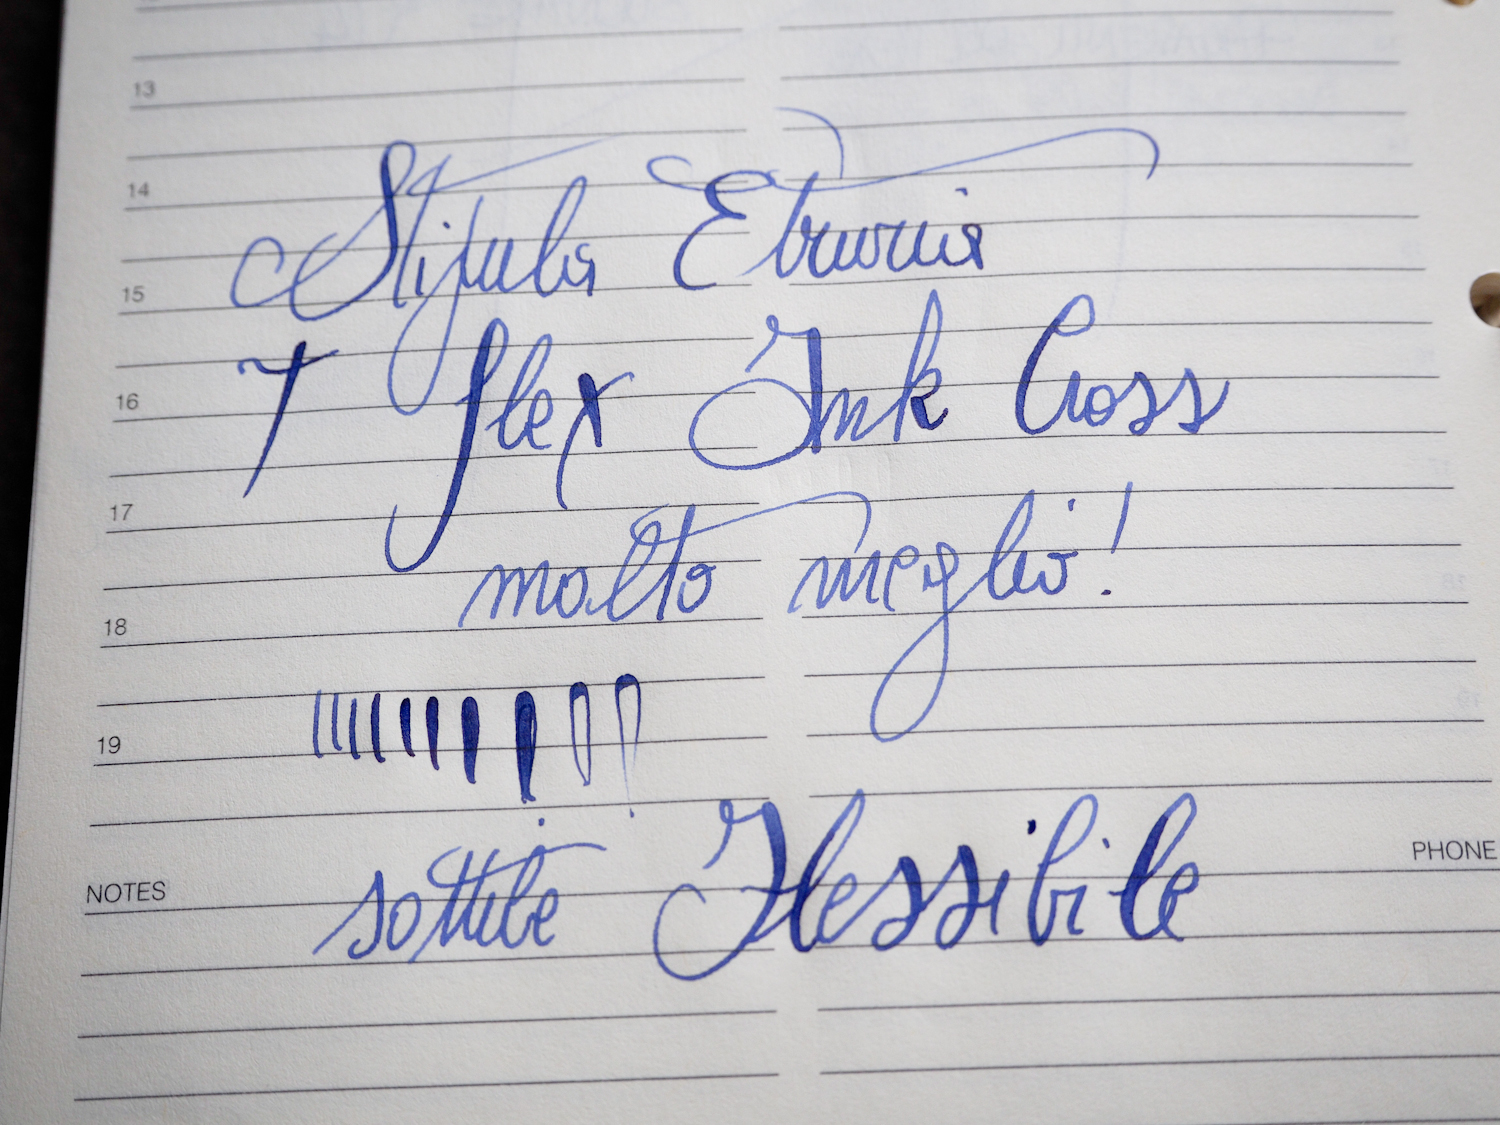 13
14
Stipula Etruria
15
T flex Ink Cross
16
17
molto meglio!
18
19
NOTES
PHONE
sottile Flessibile